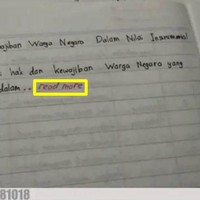 ajiban Warga Negara Dalam Nilai Instrumental
hak dan kewajiban Warga Negara yang
dalam... read more
81018